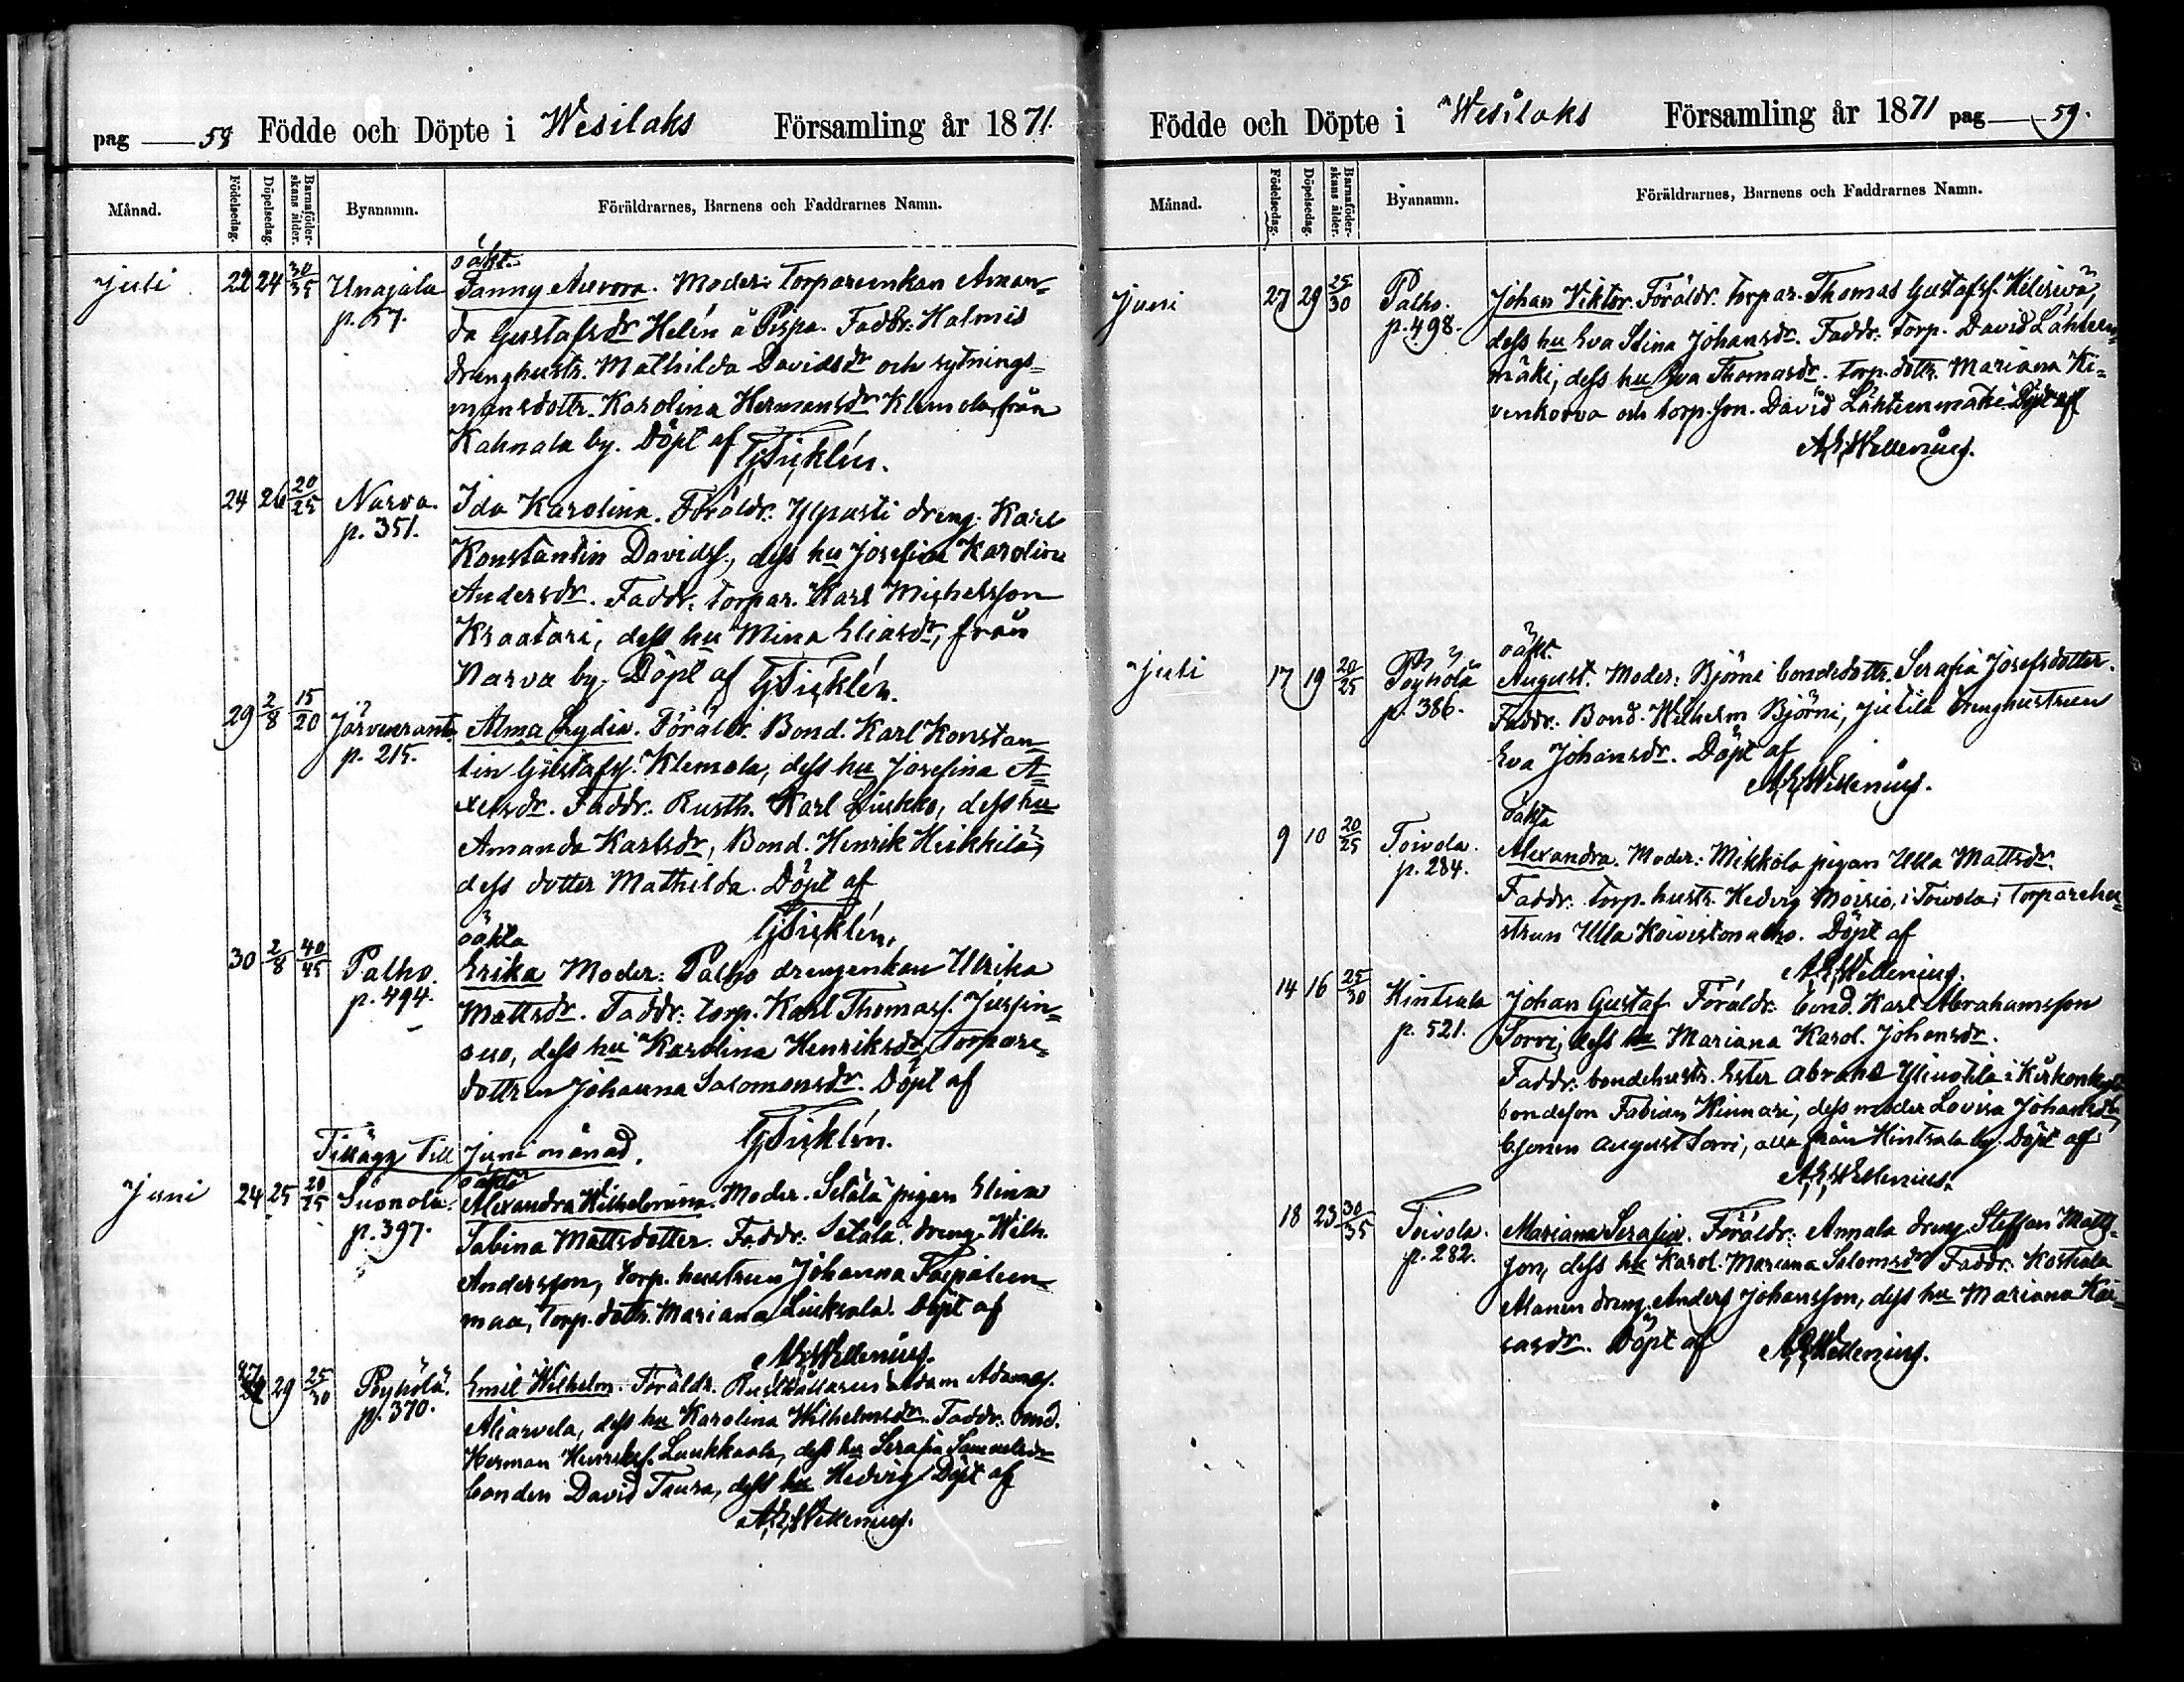 pag 58 Födde och Döpte i Wesilaks Församling år 1871.
Månad. Födelsedag. Döpelsedag. Barnaföderskans ålder. Byanamn. Föräldrarnes, Barnens och Faddrarnes Namn.
oäkt.
Juli 22 24 30/35 Unajala Fanny Aurora. Moder: torpareenkan Aman=
p. 57. da Gustafsdr Helén å Pispa. Faddr. Halmis
drenghustr. Mathilda Davidsdr och sytnings=
mansdottr. Karolina Hermansdr Klemola, från
Kahnala by. Döpt af
G. Ticklén.
24 26 20/25 Narva. Ida Karolina. Föräldr. Ylpusti dreng. Karl
p. 351. Konstantin Davidss., dess hu Josefina Karolina
Andersdr. Faddr: torpar. Karl Michelsson
Kraatari, dess hu Mina Eliasdr, från
Narva by. Döpt af G. Ticklén.
29 2/8 15/20 Järvenranta Alma Lydia. Föräldr. Bond. Karl Konstan=
p. 215. tin Gustafss. Klemola, dess hu Josefina A=
xelsdr. Faddr. Rusth. Karl Liukko, dess hu
Amanda Karlsdr, Bond. Henrik Heikkilä,
dess dotter Mathilda. Döpt af
G. Ticklén.
oäkta
30 2/8 40/45 Palho. Erika Moder: Palho drengenkan Ulrika
p. 494. Mattsdr. Faddr: torp. Karl Thomass. Jussin=
suo, dess hu Karolina Henriksdr, torpare=
dottren Johanna Salomonsdr. Döpt af
G. Ticklén.
Tillägg till Juni månad.
oäkta
Juni 24 25 20/25 Suonola. Alexandra Wilhelmina. Moder. Setälä pigan Elina
p. 397. Sabina Mattsdotter. Faddr. Setälä dreng Wilh.
Andersson, torp. hustrun Johanna Taipaleen=
maa, torp. dottr. Mariana Liuksala. Döpt af
A. E. Wellenius.
27 29 25/30 Pöyhölä. Emil Wilhelm. Föräldr. Rusthållaren Adam Adamss.
p. 370. Aliarvela, dess hu Karolina Wilhelmsdr. Faddr: bond.
Herman Henrikss. Laukkaala, dess hu Serafia Samuelsdr
bonden David Taura, dess hu Hedvig Döpt af
A. E. Wellenius.
Födde och Döpte i Wesilaks Församling år 1871 pag 59.
Månad. Födelsedag. Döpelsedag. Barnaföderskans ålder. Byanamn. Föräldrarnes, Barnens och Faddrarnes Namn.
Juni 27 29 25/30 Palho. Johan Viktor. Föräldr. torpar. Thomas Gustafss.
p. 498. dess hu Eva Stina Johansdr. Faddr: torp. David Lähteen=
mäki, dess hu Eva Thomasdr. torp. dottr. Mariana Ki=
venkorva och torp. son. David Lähteenmäki Döpt af
A. E. Wellenius.
oäkt.
Juli 17 19 20/25 Pöyhölä August. Moder: Björni bondedottr. Serafia Josefsdotter.
p. 386. Faddr: Bond. Wilhelm Björni, Jutila drenghustrun
Eva Johansdr. Döpt af
A. E. Wellenius.
oäkta
9 10 20/25 Toivola. Alexandra. Moder: Mikkola pigan Ulla Mattsdr.
p. 284. Faddr. torp. hustr. Hedvig Moisio, i Toivola; torparehu=
strun Ulla Koivistonalho. Döpt af
A. E. Wellenius.
14 16 25/30 Hintsala Johan Gustaf Föräldr: bond. Karl Abrahamsson
p. 521. Sorri, dess hu Mariana Karol. Johansdr.
Faddr: bondehustr. Ester Abrahd i Kirkonkylä
bondeson Fabian Hinnari, dess moder Lovisa Johansdr
August Sorri, alla från Hintsala by. Döpt af
A. E. Wellenius.
18 23 30/35 Toivola. Mariana Serafia. Föräldr: Annala dreng. Steffan Matts=
p. 282. son, dess hu Karol. Mariana Salomsdr Faddr. Kostiala
Alanen dreng. Anders Johansson, dess hu Mariana
sasdr. Döpt af A. E. Wellenius.